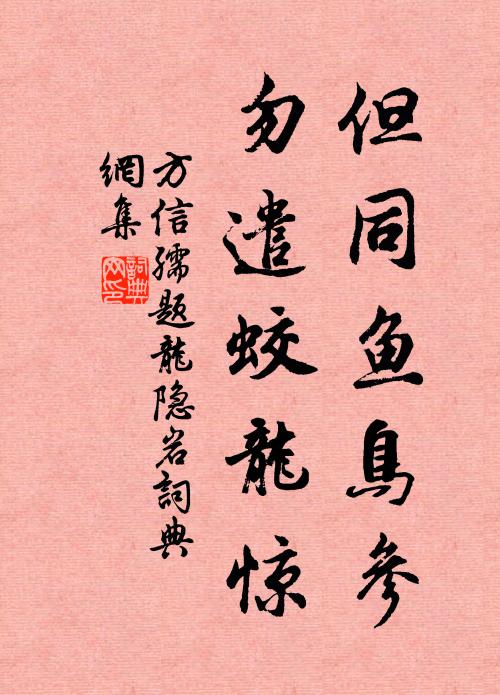 但同鱼鳥參
勿遣蛟龍惊
方信孺题龍隐岩詞典
網集
詞典
网印